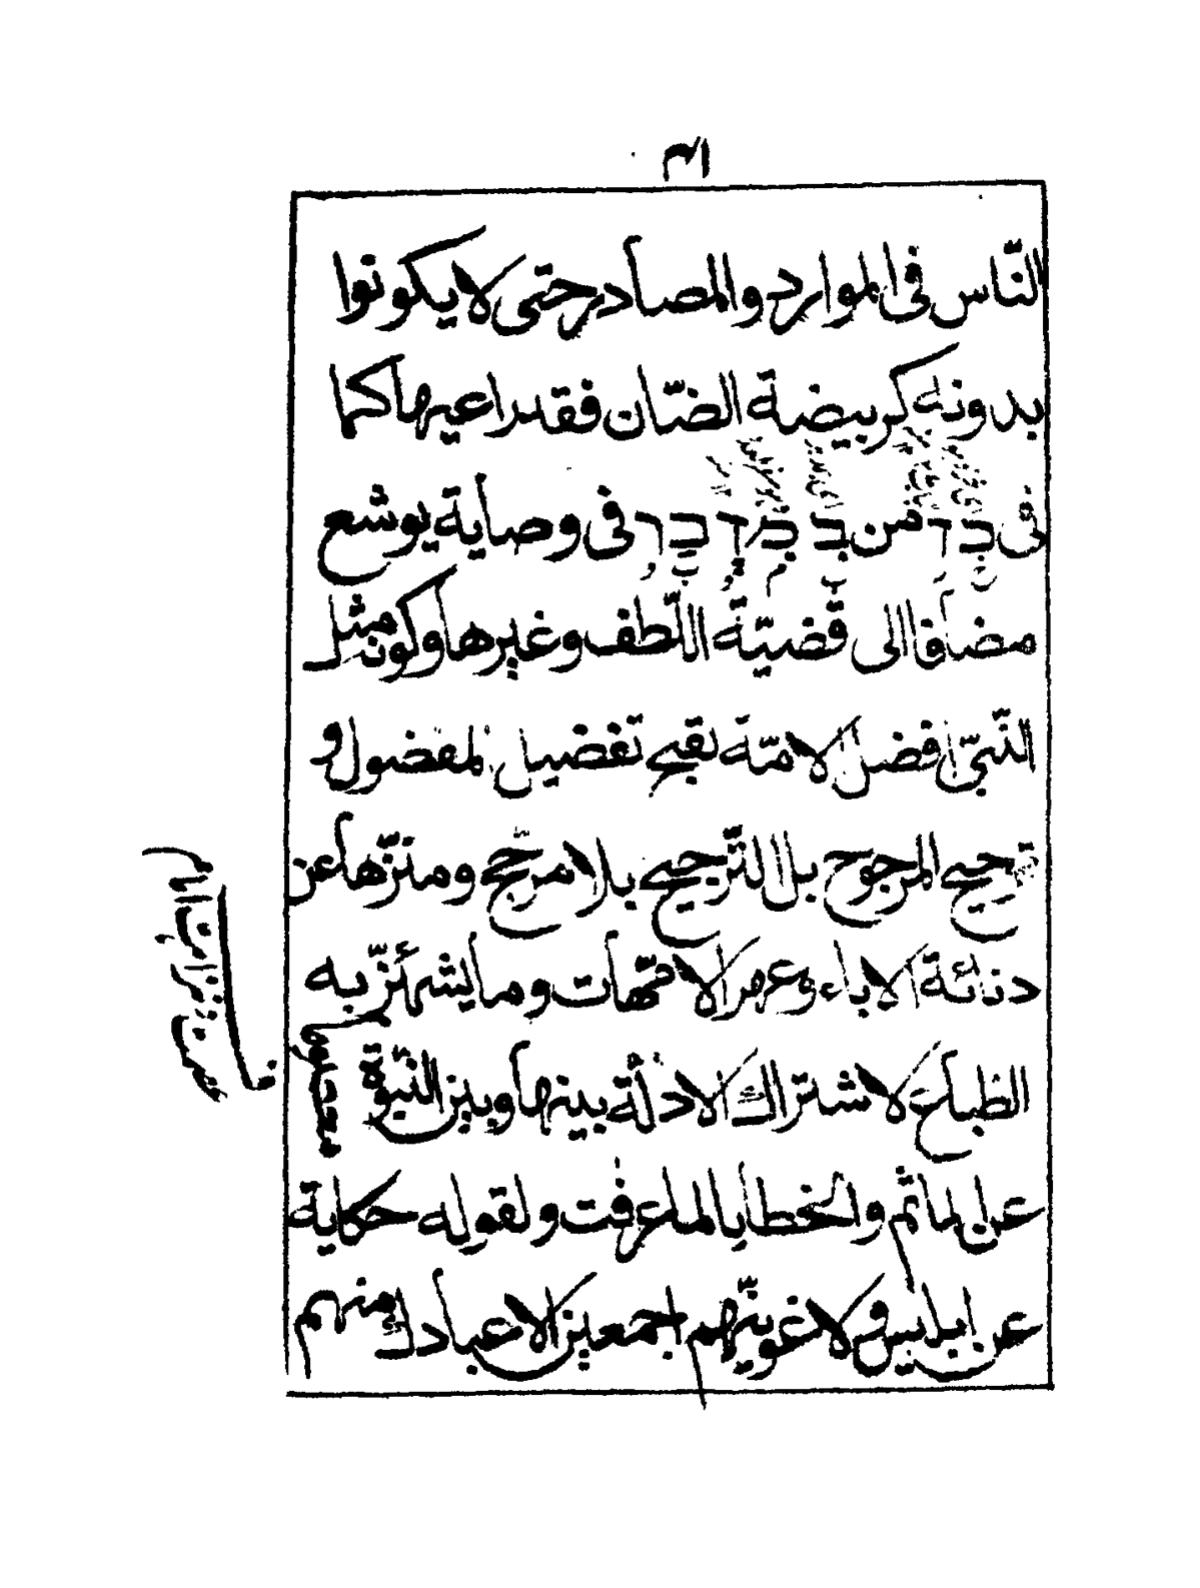 النّاس فی الموارد والمصادر حتى لا يكونوا
بدونه كربيضة الضّان فقد راعيها كما
فی من فی وصاية يوشع
مضافا الى قضيّة اللّطف وغيرها وكونه مثل
النبیّ افضل الامّة لقبح تفضيل المفضول و
ترجيح المرجوح بل الترّجيح بلا مرجّح ومنزّها عن
دنائة الاباء وعهر الامّهات وما يشمئزّ به
الطّباع لاشتراك الادلّة بينها وبين النّبوّة ومعصوما
عن المآثم والخطايا لما عرفت ولقوله حكاية
عن ابليس ولاغوينّهم اجمعين الا عبادك منهم
فی